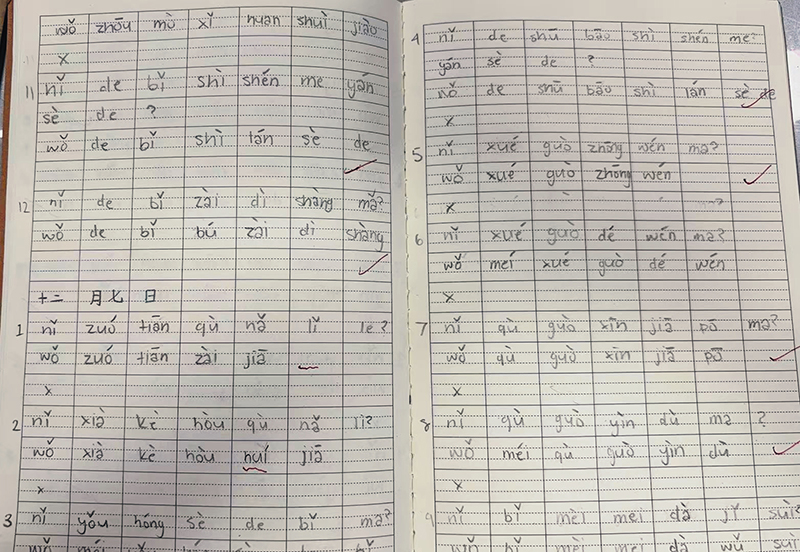 wǒ zhōu mò xǐ huan shuì jiào
x
11 nǐ de bǐ shì shén me yán
sè de ?
wǒ de bǐ shì lán sè de
12 nǐ de bǐ zài dì shàng mǎ?
wǒ de bǐ bú zài dì shàng
十二 月七 日
1 nǐ zuó tiān qù nǎ lǐ le?
wǒ zuó tiān zài jiā
x
2 nǐ xià kè hòu qù nǎ li?
wǒ xià kè hòu huí jiā
x
3 nǐ yǒu hóng sè de bǐ ma?
4 nǐ de shū bāo shì shén me?
yán sè de ?
wǒ de shū bāo shì lán sè de
x
5 nǐ xué guò zhōng wén ma?
wǒ xué guò zhōng wén
x
6 nǐ xué guò dé wén ma?
wǒ méi xué guò dé wén
x
7 nǐ qù guò xīn jiā pō ma?
wǒ qù guò xīn jiā pō
x
8 nǐ qù guò yìn dù ma ?
wǒ méi qù guò yìn dù
x
9 nǐ bǐ mèi mei dà jǐ suì?